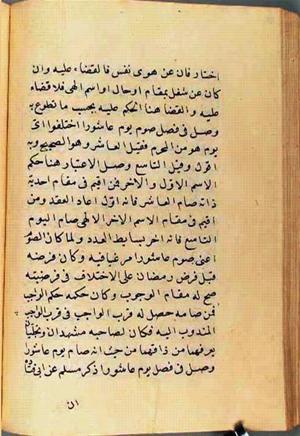 اختار فان عن هوى نفس فالقضاء عليه وان
كان عن شغل بمقام او حال او اسم الهى فلا قضاء
عليه والقضا هنا الحكم عليه بحسب ما تطوع به
وصل فى فصل صوم يوم عاشورا اختلفوا اى
يوم هو من المحرم فقيل العاشر وهو الصحيح وبه
اقول وقيل التاسع وصل الاعتبار هنا حكم
الاسم الاول والاخر فمن اقيم فى مقام احدية
ذاته صام العاشر فانه اول احاد العقد ومن
اقيم فى مقام الاسم الاخر الالهى صام اليوم
التاسع فانه اخر بسايط العدد ولما كان الصوم
اعنى صوم عاشورا مرغبا فيه وكان فرضه
قبل فرض رمضان على الاختلاف فى فرضيته
صح له مقام الوجوب وكان حكمه حكم الواجب
فمن صامه حصل له قرب الواجب فى قرب
المندوب اليه فكان لصاحبه مشهدان وتجليان
يعرفهما من ذاقهما من حيث انه صام يوم عاشورا
وصل فى فصل يوم عاشورا ذكر مسلم عن ابى قتادة
ان